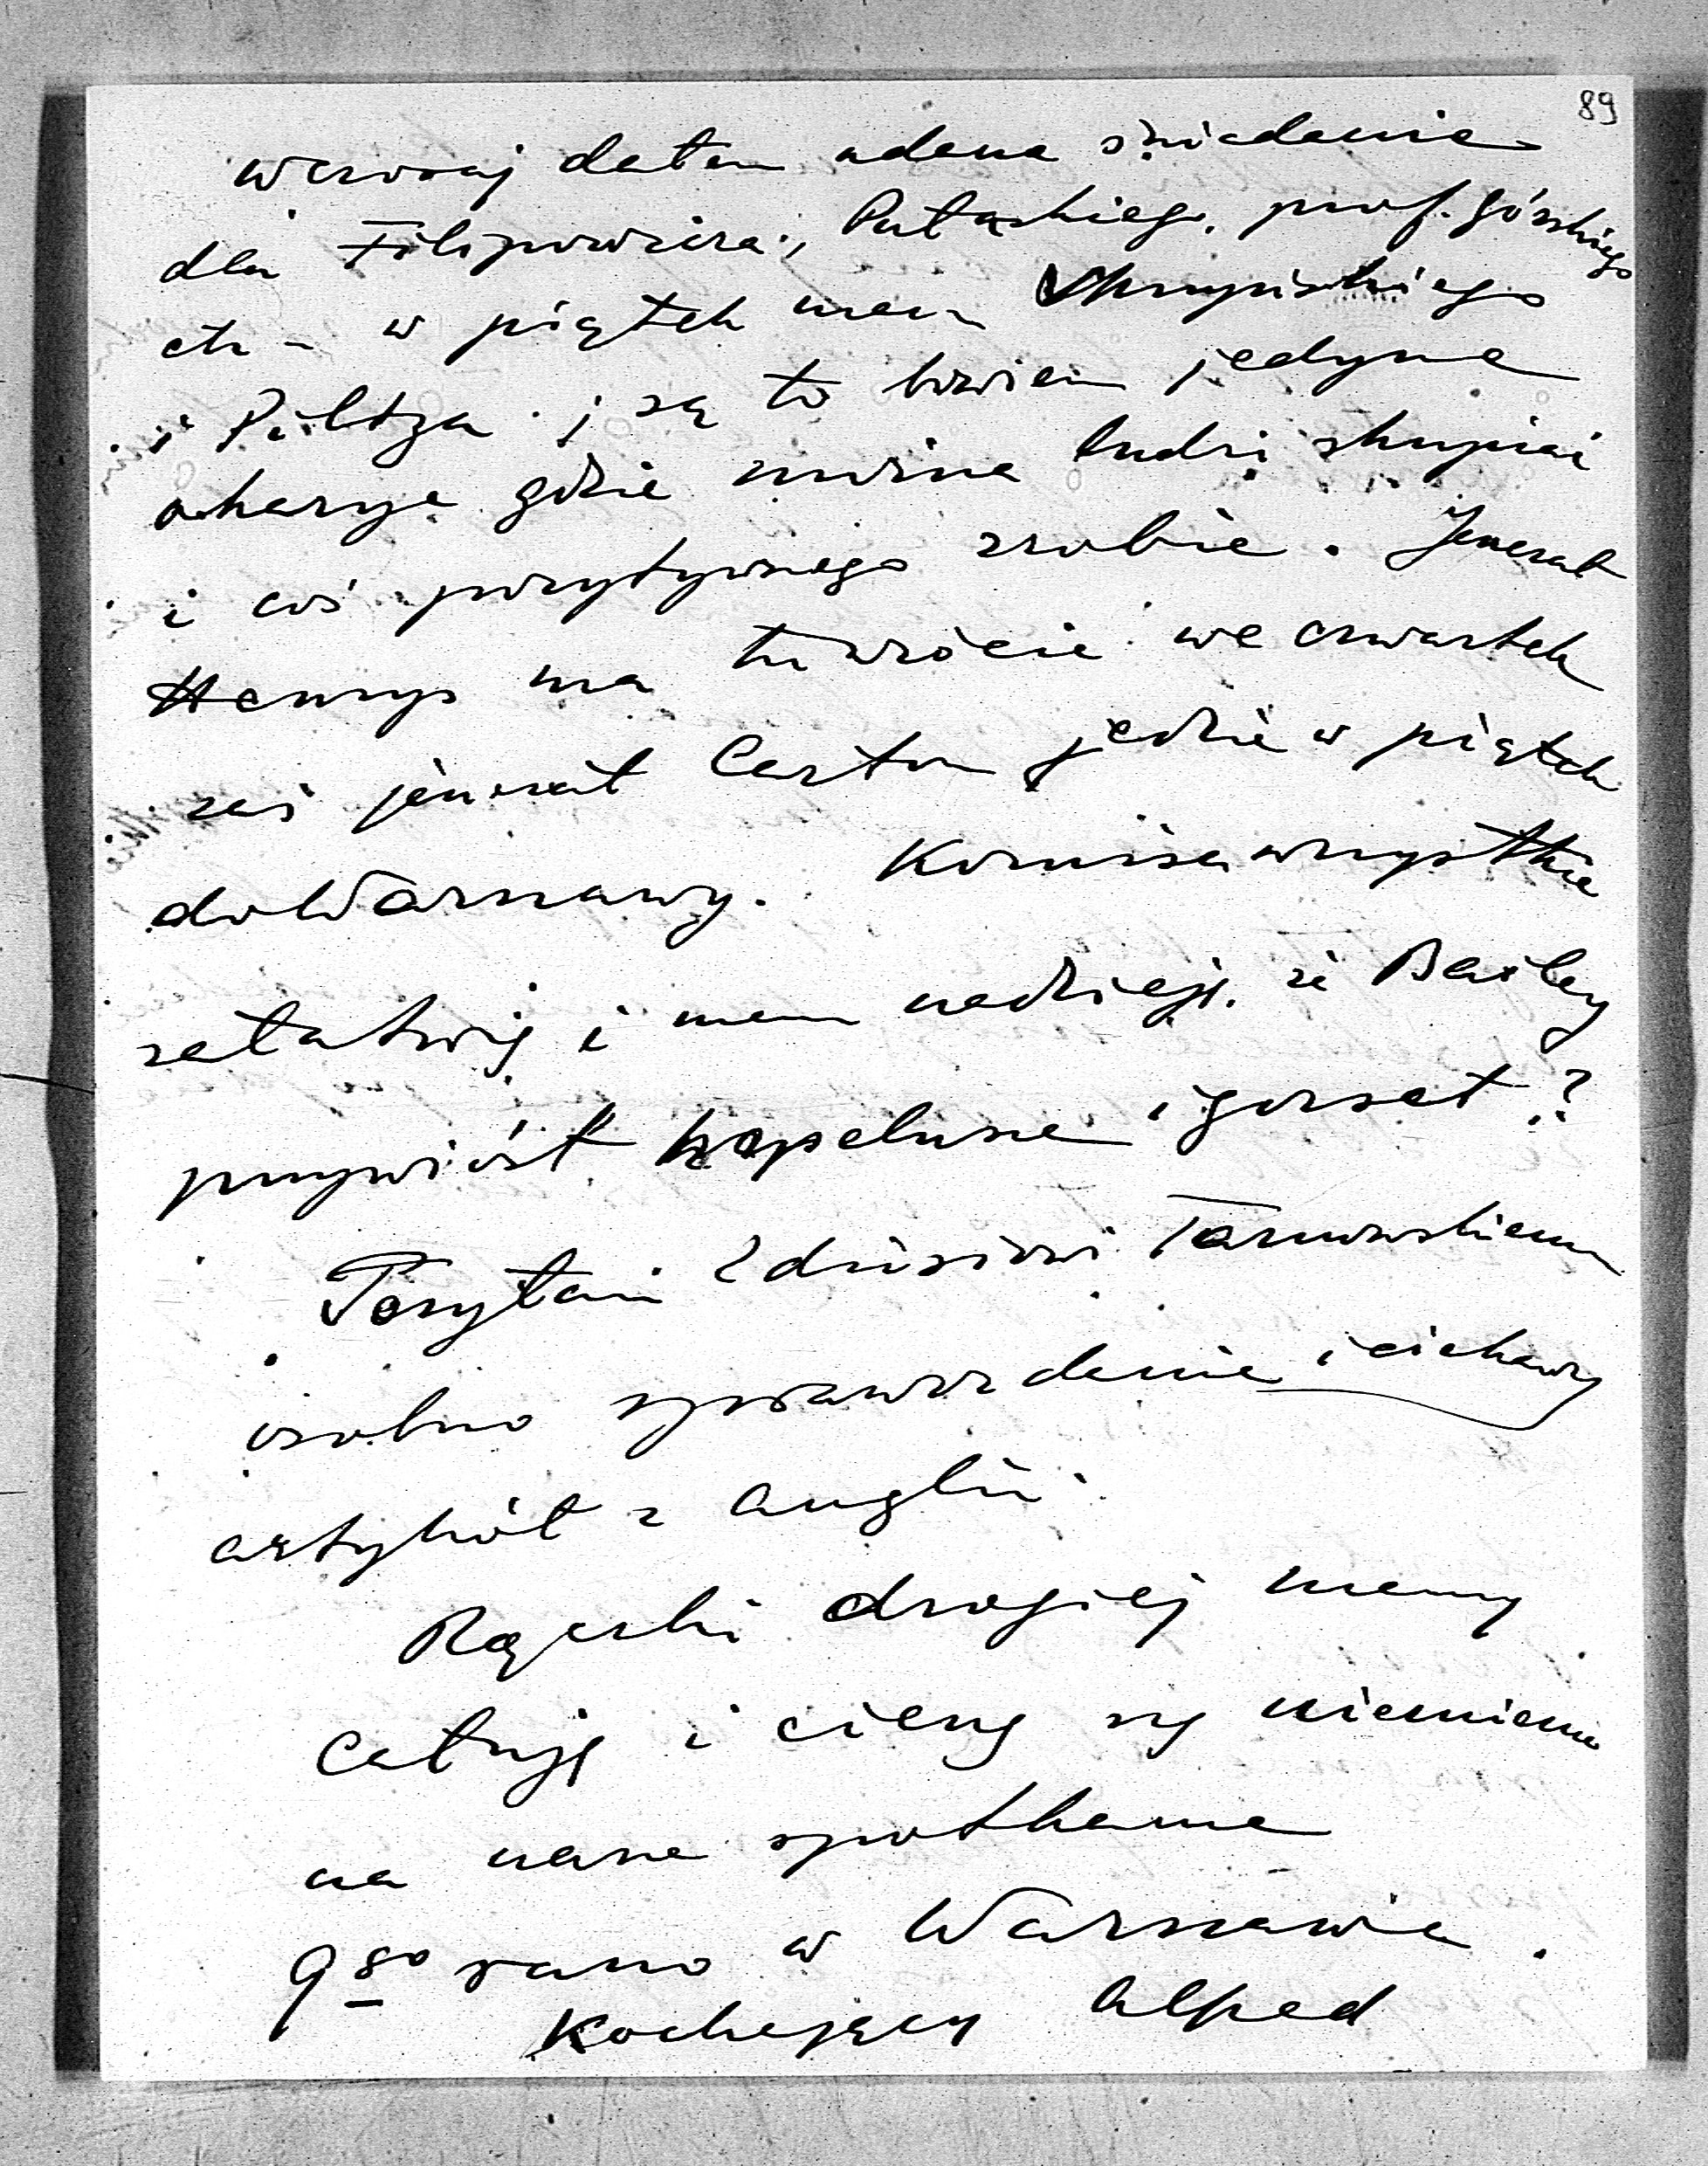 89
Wczoraj dałem udane śniadanie
dla Filipowicza, Pułaskiego, prof. Górskiego
etc - w piątek mam Skrzyńskiego
i Piltza; są to bowiem jedyne
okazye gdzie można ludzi skupiać
i coś pozytywnego zrobić. Jenerał
Henrys ma tu wrócić we czwartek
zaś jenerał Carton jedzie w piątek
do Warszawy. Komisa wszystkie
załatwię i mam nadzieję że Bailey
przywiózł kapelusze i gorset?
Posyłam Zdzisiowi Tarnowskiemu
osobno sprawozdanie i ciekawy
artykół z Anglii.
Rączki drogiej mamy
całuję i cieszę się niezmiernie
na nasze spotkanie
9go rano w Warszawie.
Kochający Alfred